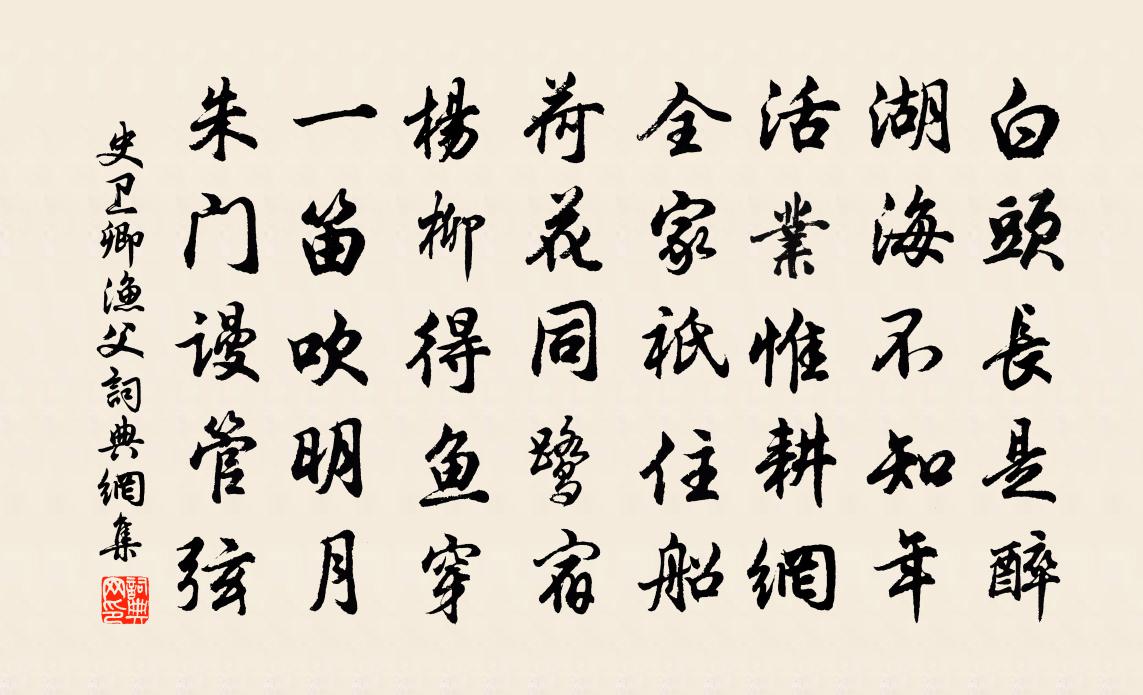 白頭長是醉
湖海不知年
活業惟耕網
全家祗住船
荷花同鷺宿
楊柳得魚穿
一笛吹明月
朱门謾管弦
史卫卿漁父詞典網集
詞典网印